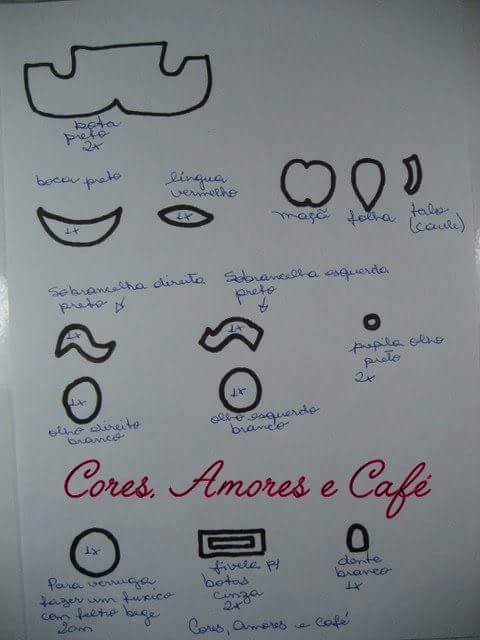 bota
preto
2x
boca preto
1x
língua
vermelho
1x
maçã
folha
talo
(caule)
Sobrancelha direita
preto
1x
Sobrancelha esquerda
preto
1x
pupila olho
preto
2x
1x
olho direito
branco
1x
olho esquerdo
branco
Cores, Amores e Café
1x
Para verruga
fazer um fuxico
com feltro bege
2cm
fivela p/
botas
cinza
2x
dente
branco
1x
Cores, Amores e café